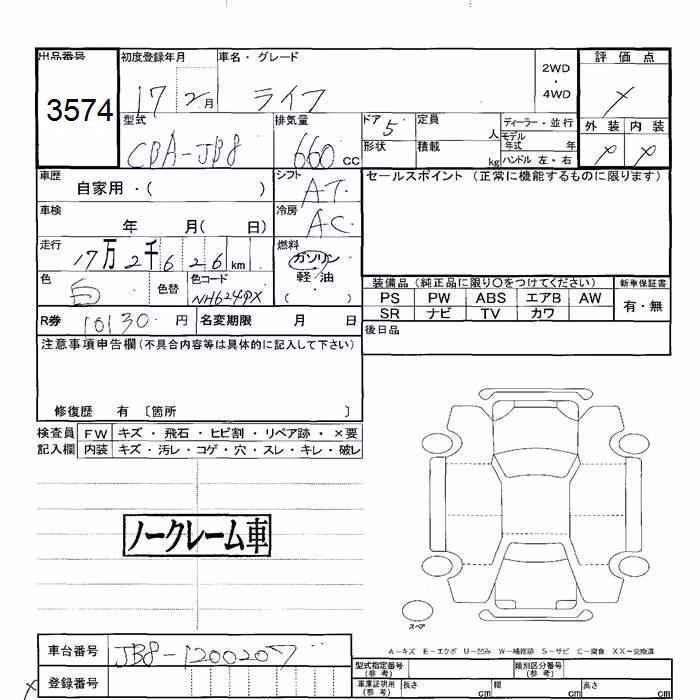 出品番号 初度登録年月 車名・グレード 2WD・4WD 評価点
3574 17 2月 ライフ ×
型式 排気量 ドア 5 定員 人 ディーラー・並行 外装 内装
CBA-JB8 660 CC 形状 積載 kg モデル年式 年 × ×
ハンドル 左・右
車歴 自家用・( ) シフト AT セールスポイント (正常に機能するものに限ります)
車検 年 月( 日) 冷房 AC
走行 17万 2千 6 2 6 km 燃料 ガソリン
軽・油
( )
色 白 色替 色コード NH624PX
装備品 (純正品に限り○をつけてください) 新車保証書
PS PW ABS エアB AW 有・無
SR ナビ TV カワ
R券 10130 円 名変期限 月 日 後日品
注意事項申告欄(不具合内容等は具体的に記入して下さい)
修復歴 有 〔箇所 〕
検査員 FW キズ・飛石・ヒビ割・リペア跡・×要
記入欄 内装 キズ・汚レ・コゲ・穴・スレ・キレ・破レ
ノークレーム車
スペア
A-キズ E-エクボ U-凹み W-補修跡 S-サビ C-腐食 XX-交換済
車台番号 JB8-1200207
型式指定番号(参考) 類別区分番号(参考)
登録番号 車庫証明用(参考) 長さ cm 幅 cm 高さ cm
×